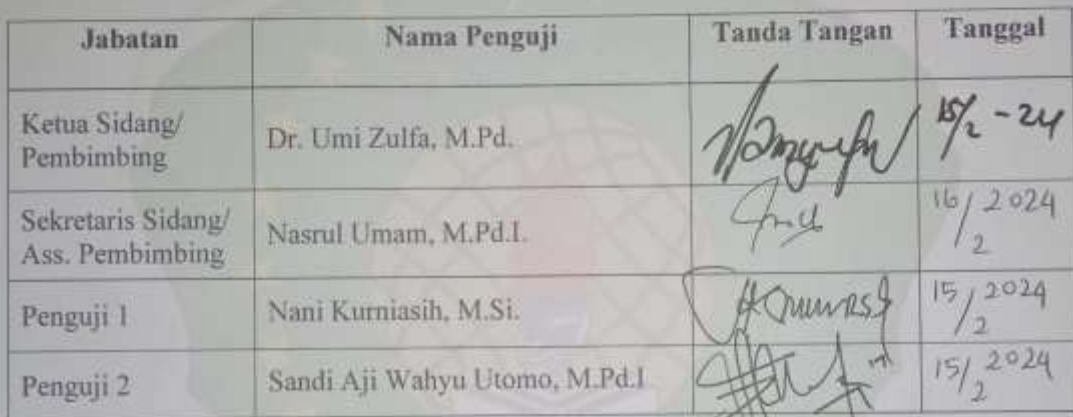 Jabatan Nama Penguji Tanda Tangan Tanggal
Ketua Sidang/
Pembimbing
Dr. Umi Zulfa, M.Pd.
15/2 - 24
Sekretaris Sidang/
Ass. Pembimbing
Nasrul Umam, M.Pd.I.
16/2 2024
Penguji 1 Nani Kurniasih, M.Si. 15/2 2024
Penguji 2 Sandi Aji Wahyu Utomo, M.Pd.I 15/2 2024